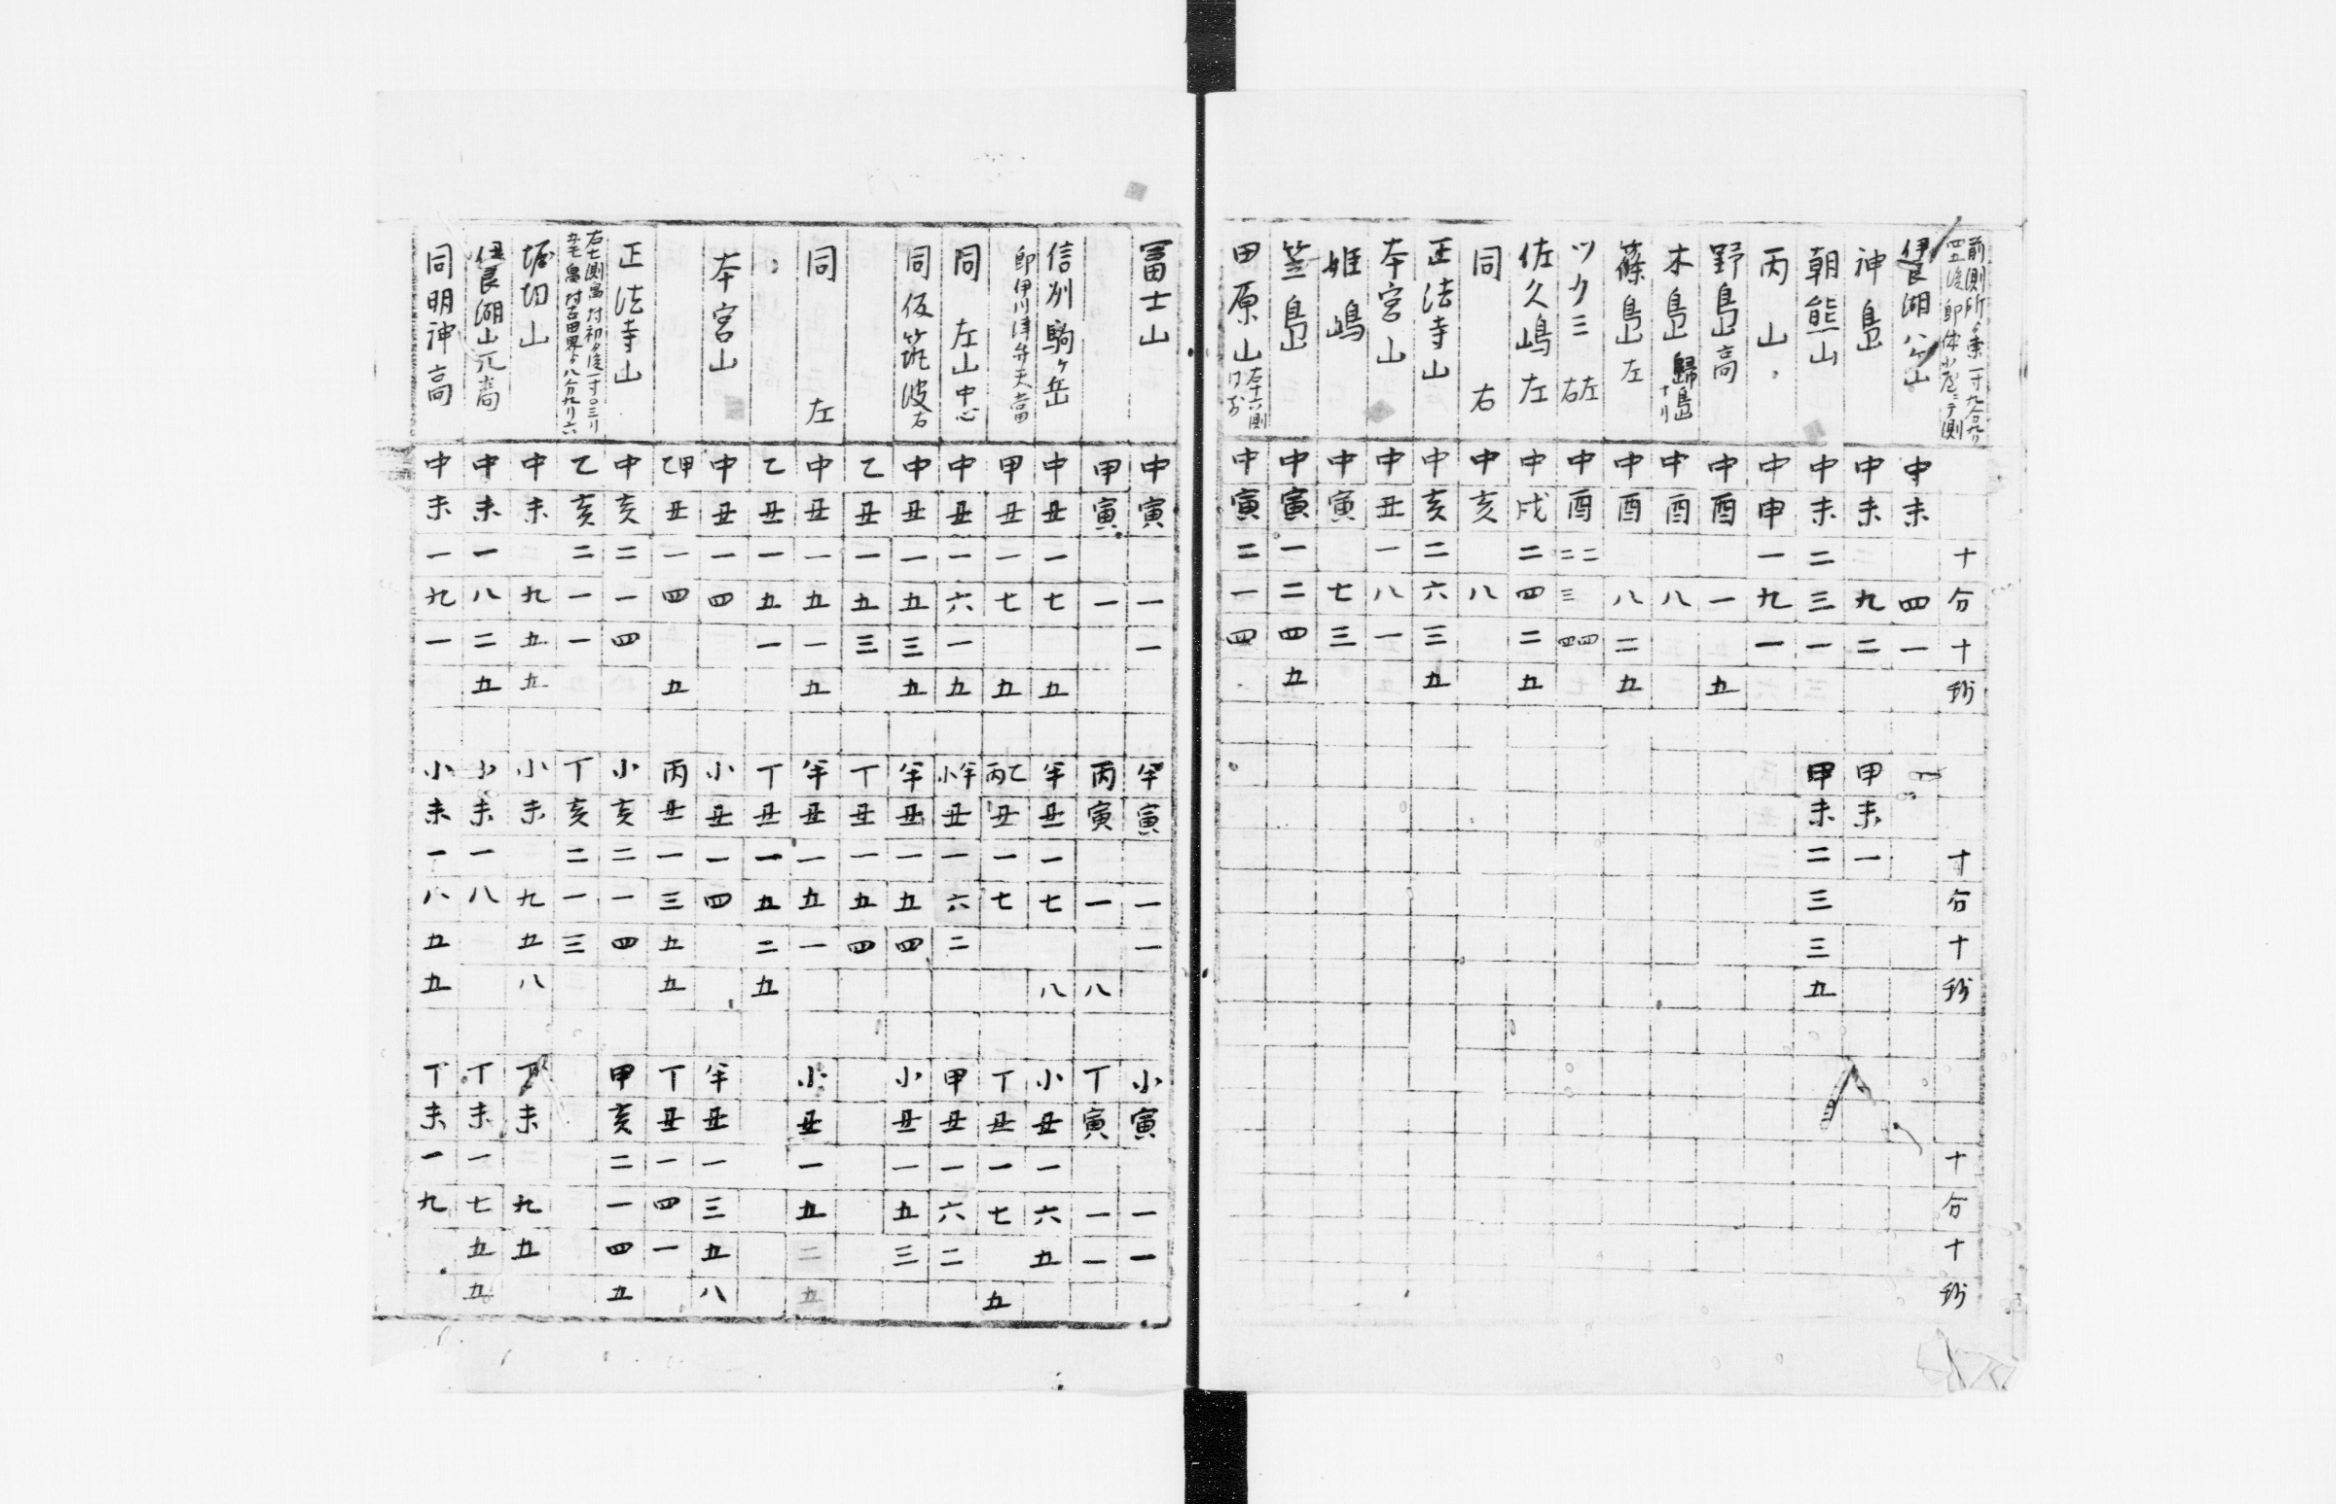 前側所ゟ乗一寸九分九リ
四五渡即休小屋ニテ測
十分十秒 寸分十秒 十分十秒
伊良湖八ケ山 中未四一
神島 中未九二 甲未一
朝熊山 中未二三一 甲未二三三五
丙山 中申一九一
野島高 中酉一五
木島 歸島ナリ 中酉八
篠島左 中酉八二五
ツクミ 左右 中酉二二三四四
佐久嶋左 中戌二四二五
同右 中亥八
正法寺山 中亥二六三五
本宮山 中丑一八一
姫嶋 中寅七三
笠島 中寅一二四五
田原山 中寅二一四
冨士山 中寅一一 半寅一一 小寅一一
甲寅一 丙寅一八 丁寅一一
信州駒ケ岳 中丑一七五 半丑一七八 小丑一六五
即伊川津弁天當 甲丑一七五 丙乙丑一七 丁丑一七五
同左山中心 中丑一六一五 小半丑一六二 甲丑一六二
同仮筑波右 中丑一五三五 半丑一五四 小丑一五三
乙丑一五三 丁丑一五四
同左 中丑一五一五 半丑一五一 小丑一五二五
乙丑一五一 丁丑一五二五
本宮山 中丑一四 小丑一四 半丑一三五八
乙甲丑一四五 丙丑一三五五 丁丑一四一
正法寺山 中亥二一四 小亥二一四 甲亥二一四五
乙亥二一一 丁亥二一三
堀切山 中未九五五 小未九五八 丁未九五
伊良湖山元高 中未一八二五 小未一八 丁未一七五五
同明神高 中未一九一 小未一八五五 丁未一九